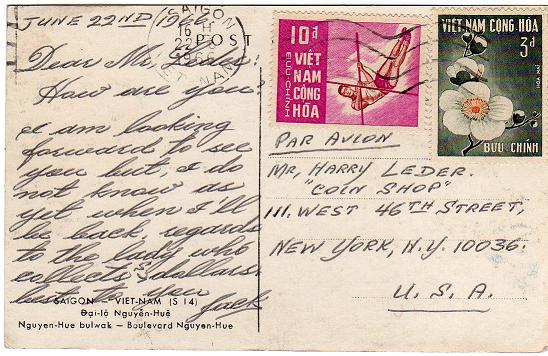 JUNE 22ND 1966
SAIGON
16 H
22
1966
VIET-NAM
POST
Dear Mr.
How are you?
I am looking
forward to see
you but, i do
not know as
yet when I'll
be back, regards
to the lady who
collects 3 dollars.
best to you
Jack
SAIGON VIET-NAM (S 14)
Đại-lộ Nguyễn-Huệ
Nguyen-Hue bulwak — Boulevard Nguyen-Hue
10đ
BƯU-CHÍNH
VIỆT
NAM
CỘNG
HÒA
VIỆT-NAM CỘNG-HÒA
3đ
BƯU CHÍNH
PAR AVION
MR, HARRY LEDER.
"COIN SHOP"
111. WEST 46TH STREET,
NEW YORK, N.Y. 10036.
U. S. A.